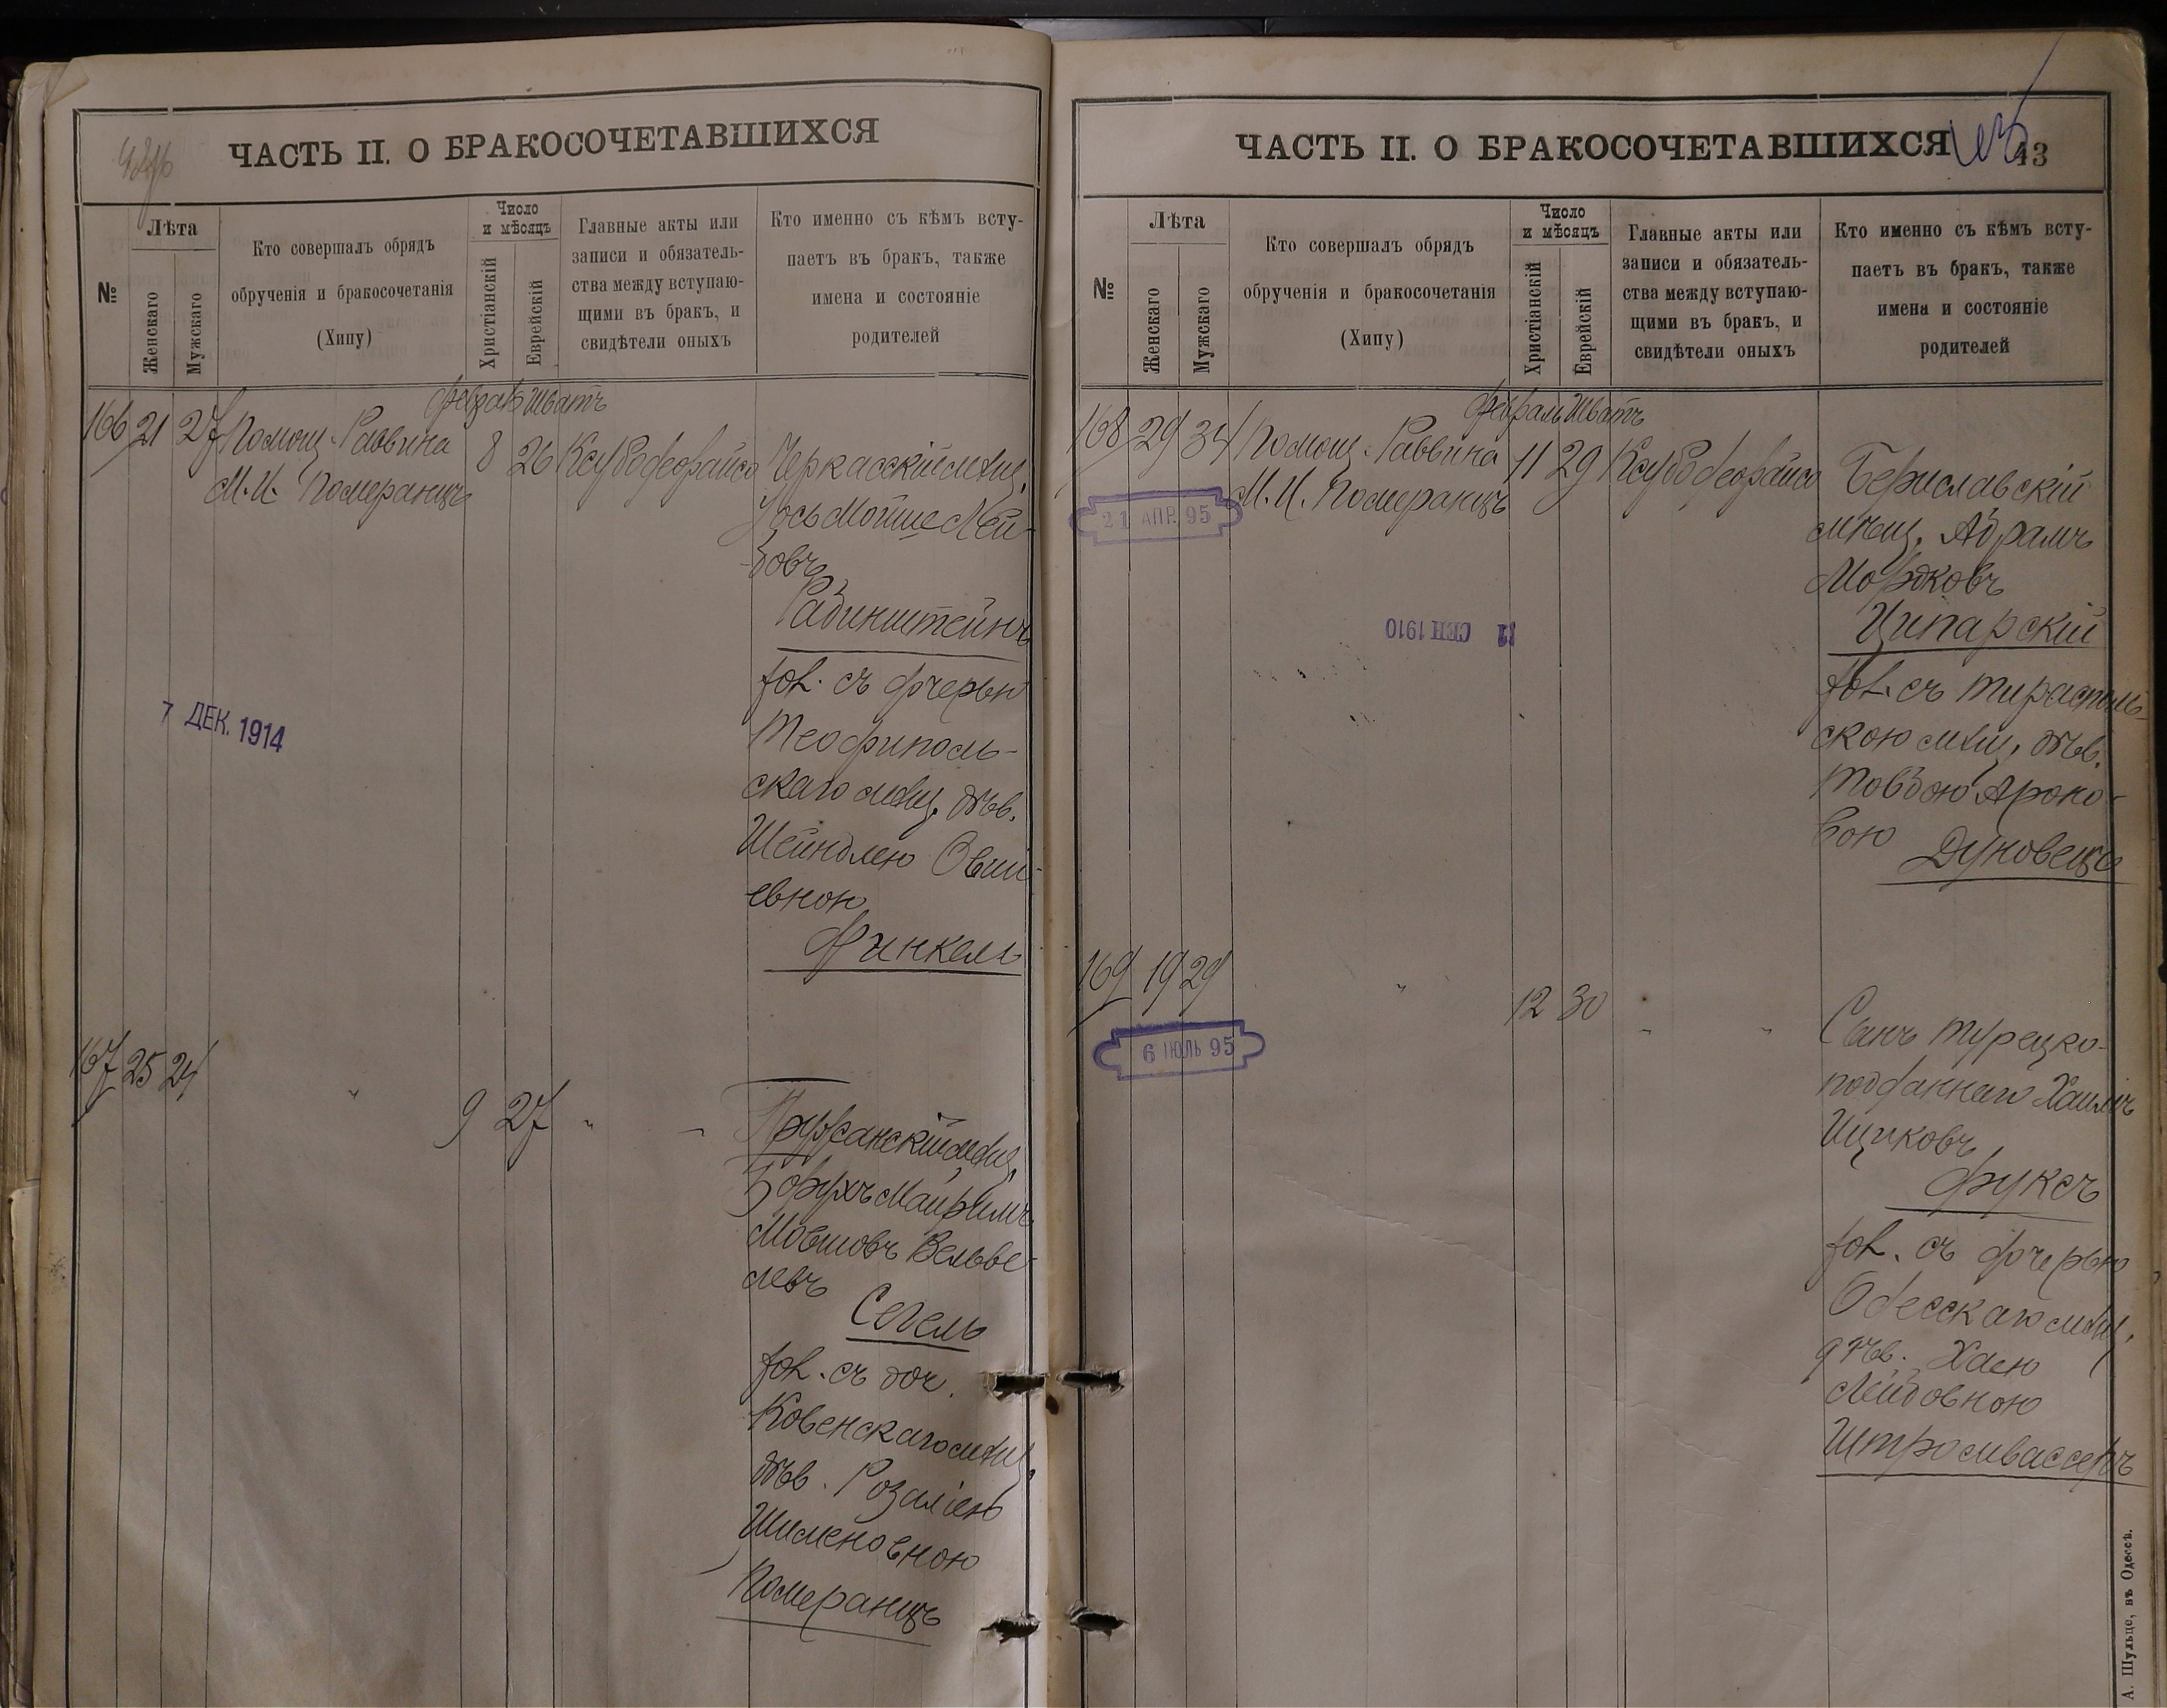 ЧАСТЬ II. О БРАКОСОЧЕТАВШИХСЯ
№
Лѣта
Женскаго
Мужскаго
Кто совершалъ обрядъ
обрученія и бракосочетанія
(Хипу)
Число
и мѣсяцъ
Христіанскій
Еврейскій
Главные акты или
записи и обязатель-
ства между вступаю-
щими въ бракъ, и
свидѣтели оныхъ
Кто именно съ кѣмъ всту-
паетъ въ бракъ, также
имена и состояніе
родителей
Шватъ
166 21 27 Помощ. Раввина
М. И. Померанцъ
8 26
Черкасскій мѣщ.
Іось Мойше Лей-
бовъ
Рабинштейнъ
хол. съ дочерью
Теофиполь-
скаго мѣщ. дѣв.
Шейндлею Овши-
евною
Финкель
7 ДЕК. 1914
167 25 24 "
9 27 " "
Пружанскій мѣщ.
Борухъ Маиримъ
Мовшовъ Вельве-
левъ
Сегель
хол. съ доч.
Ковенскаго мѣщ.
дѣв. Розаліею
Шименовною
Померанцъ
ЧАСТЬ II. О БРАКОСОЧЕТАВШИХСЯ
43
№
Лѣта
Женскаго
Мужскаго
Кто совершалъ обрядъ
обрученія и бракосочетанія
(Хипу)
Число
и мѣсяцъ
Христіанскій
Еврейскій
Главные акты или
записи и обязатель-
ства между вступаю-
щими въ бракъ, и
свидѣтели оныхъ
Кто именно съ кѣмъ всту-
паетъ въ бракъ, также
имена и состояніе
родителей
Февраль Шватъ
168 29 34 Помощ. Раввина
М. И. Померанцъ
11 29
21 АПР. 95
СЕН 1910
Бериславскій
мѣщ. Абрамъ
Мордковъ
Ципарскій
хол. съ Тирасполь-
скою мѣщ. дѣв.
Товбою Ароно-
вою
Дуновецки
169 19 29 "
12 30 " "
6 ІЮЛЬ 95
Сынъ Турецко-
подданнаго Хаимъ
Ицковъ
Фуксъ
хол. съ дочерью
Одесскаго мѣщ.
дѣв. Хаею
Лейбовною
Штромвассеръ
А. Шульце, въ Одессѣ.